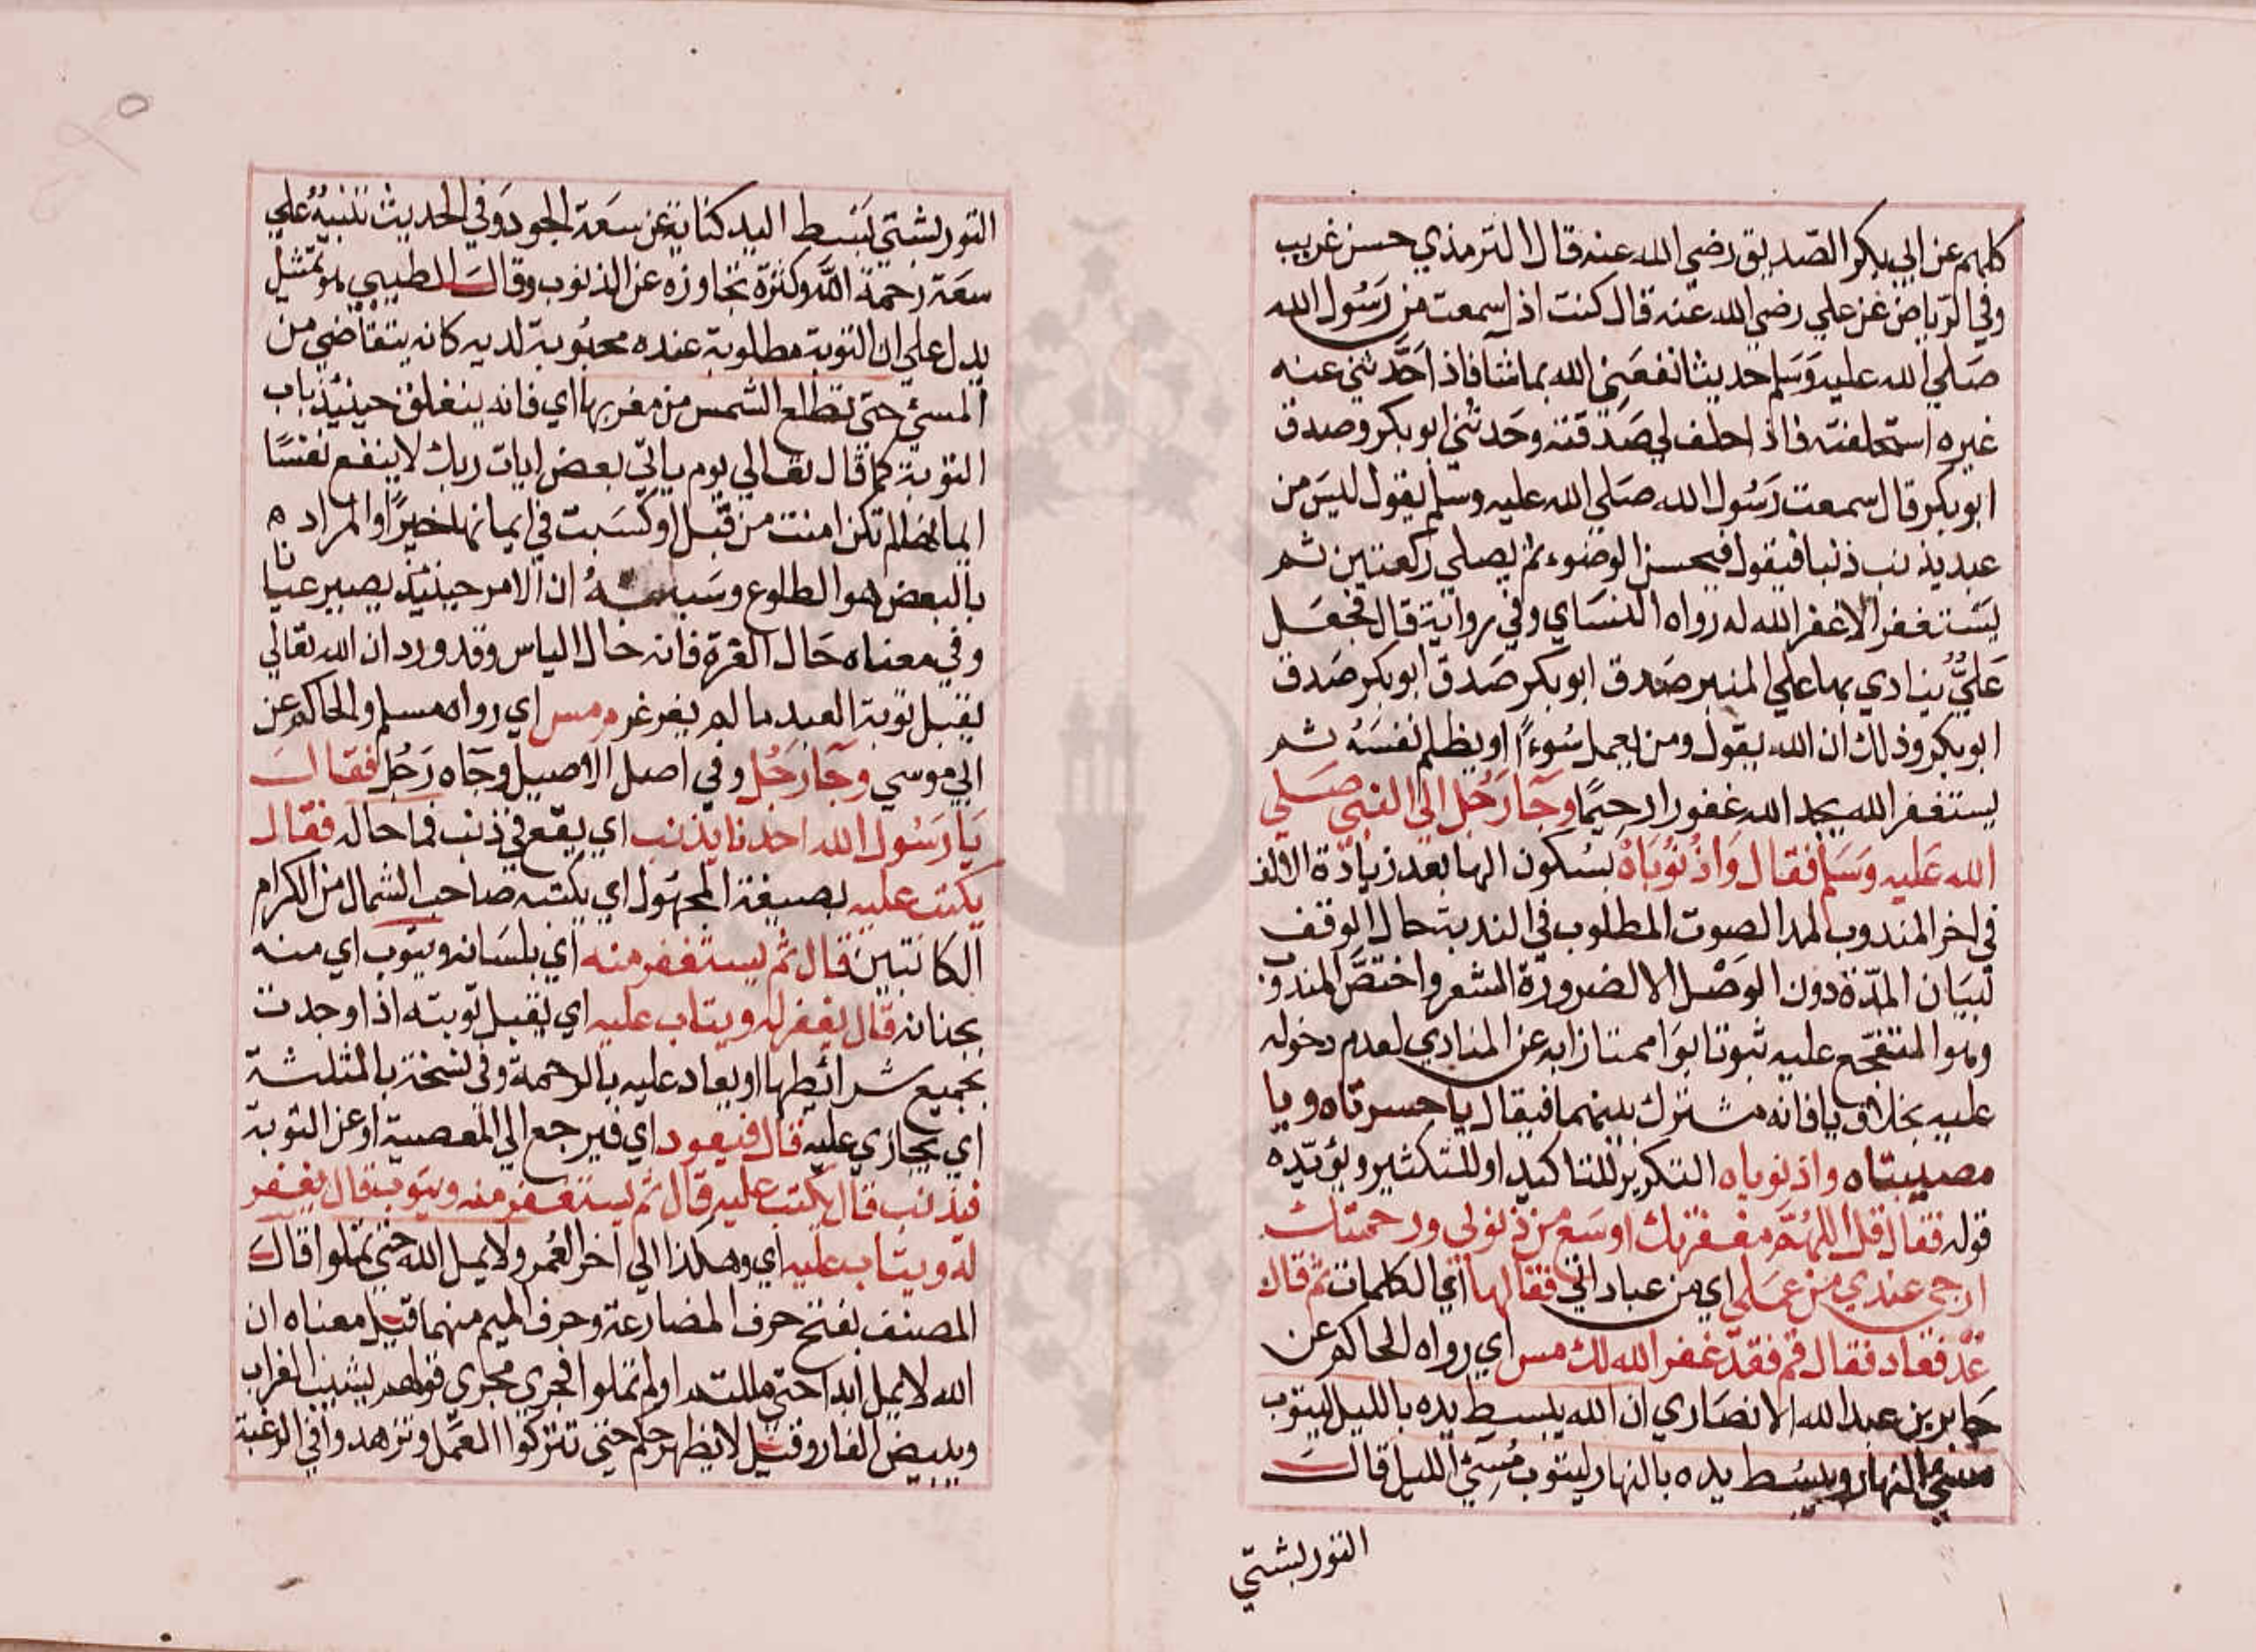 كلهم عن ابي بكر الصديق رضي الله عنه قال الترمذي حسن غريب
وفي الرياض عن علي رضي الله عنه قال كنت اذا سمعت من رسول الله
صلي الله عليه وسلم حديثا نفعني الله بما شا فاذا حدثني عنه
غيره استحلفته فاذا حلف لي صدقته وحدثني ابو بكر وصدق
ابو بكر قال سمعت رسول الله صلي الله عليه وسلم يقول ليس من
عبد يذنب ذنبا فيقول فيحسن الوضوء ثم يصلي ركعتين ثم
يستغفر الا غفر الله له رواه النساي وفي رواية قال فجعل
علي ينادي بها علي المنبر صدق ابو بكر صدق ابو بكر صدق
ابو بكر وذلك ان الله يقول ومن يعمل سوءا او يظلم نفسه ثم
يستغفر الله يجد الله غفورا رحيما وجا رجل الي النبي صلي
الله عليه وسلم فقال وا ذنوباه بسكون الها بعد زيادة الالف
في اخر المندوب لمد الصوت المطلوب في الندبة حال الوقف
لبيان المدة دون الوصل الا لضرورة الشعر واختص المندوب
وهو المتفجع عليه ثبوتا بوا ممتازا به عن المنادي لعدم دخوله
عليه بخلاف يا فانه مشترك بينهما فيقال يا حسرتاه ويا
مصيبتاه وا ذنوباه التكرير للتاكيد او للتكثير ويؤيده
قوله فقال قل اللهم مغفرتك اوسع من ذنوبي ورحمتك
ارجي عندي من عملي اي من عباداتي فقالها اي الكلمات ثم قال
عد فعاد فقال قم فقد غفر الله لك مس اي رواه الحاكم عن
جابر بن عبد الله الانصاري ان الله يبسط يده بالليل ليتوب
مسيئ النهار ويبسط يده بالنهار ليتوب مسيئ الليل قال
التوربشتي
التوربشتي بسط اليد كناية عن سعة الجود وفي الحديث تنبيه علي
سعة رحمة الله وكثرة تجاوزه عن الذنوب وقال الطيبي هو تمثيل
يدل علي ان التوبة مطلوبة عنده محبوبة لديه كانه يتقاضي من
المسئ حتي تطلع الشمس من مغربها اي فانه ينغلق حينئذ باب
التوبة كما قال تعالي يوم ياتي بعض ايات ربك لا ينفع نفسا
ايمانها لم تكن امنت من قبل او كسبت في ايمانها خيرا والمراد ه
بالبعض هو الطلوع ان الامر حينئذ يصير عيانا
وفي معناه حال الغرغرة فانه حال الياس وقد ورد ان الله تعالي
يقبل توبة العبد ما لم يغرغر م مس اي رواه مسلم والحاكم عن
ابي موسي وجا رجل وفي اصل الاصيل وجاه رجل فقال
يا رسول الله احدنا يذنب اي يقع في ذنب فما حاله فقال
يكتب عليه بصيغة المجهول اي يكتبه صاحب الشمال من الكرام
الكاتبين قال ثم يستغفر منه اي بلسانه ويتوب اي منه
بجنانه قال يغفر له ويتاب عليه اي يقبل توبته اذا وجدت
بجميع شرائطها او يعاد عليه بالرحمة وفي نسخة بالمثلثة
اي يجازي عليه قال فيعود اي فيرجع الي المعصية او عن التوبة
فيذنب قال يكتب عليه قال ثم يستغفر منه ويتوب قال يغفر
له ويتاب عليه اي وهكذا الي اخر العمر ولا يمل الله حتي تملوا قال
المصنف بفتح حرف المضارعة وحرف الميم منهما قيل معناه ان
الله لا يمل ابدا حتي مللتم او لم تملوا فجري مجري قولهم يشيب الغراب
ويبيض الفار وقيل لا يظهر حكم حتي تتركوا العمل وتزهدوا في الرغبة